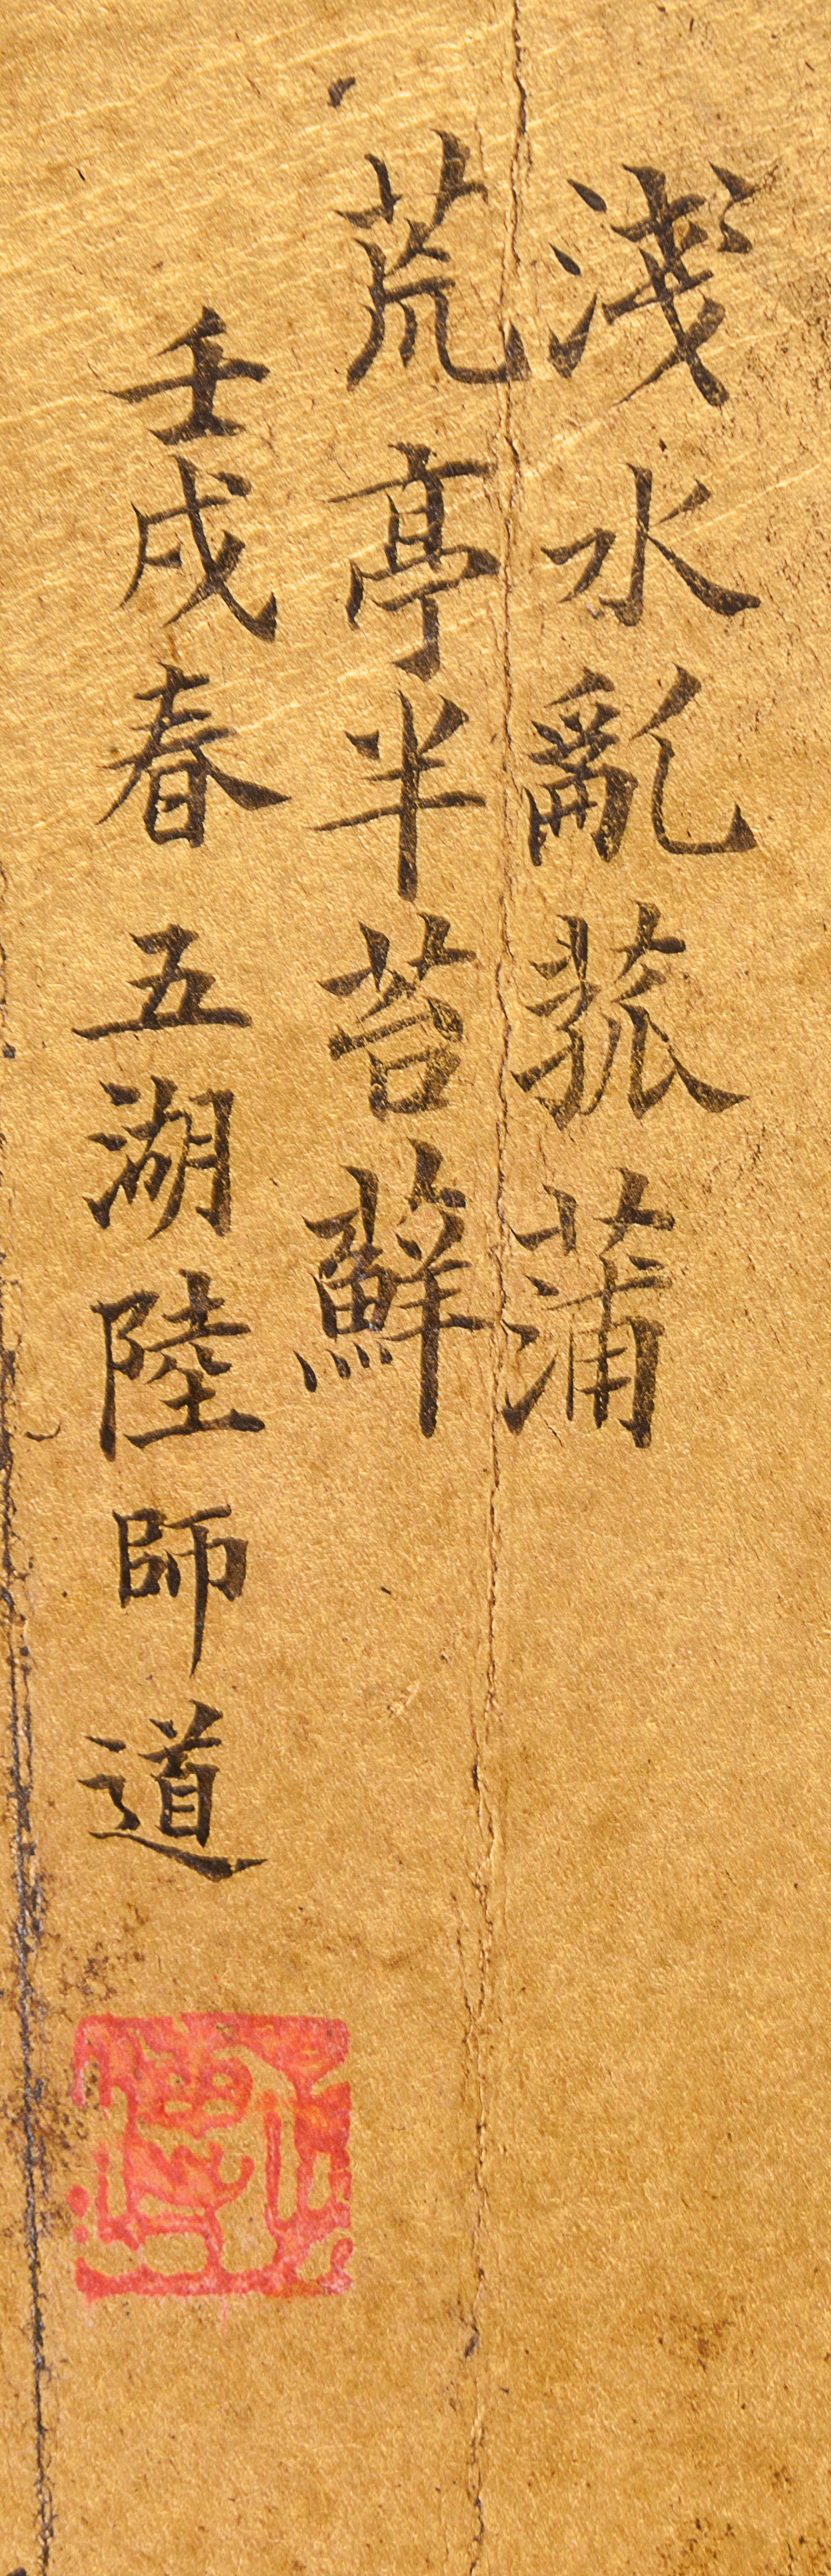 淺水亂菰蒲
荒亭半苔蘚
壬戌春五湖陸師道